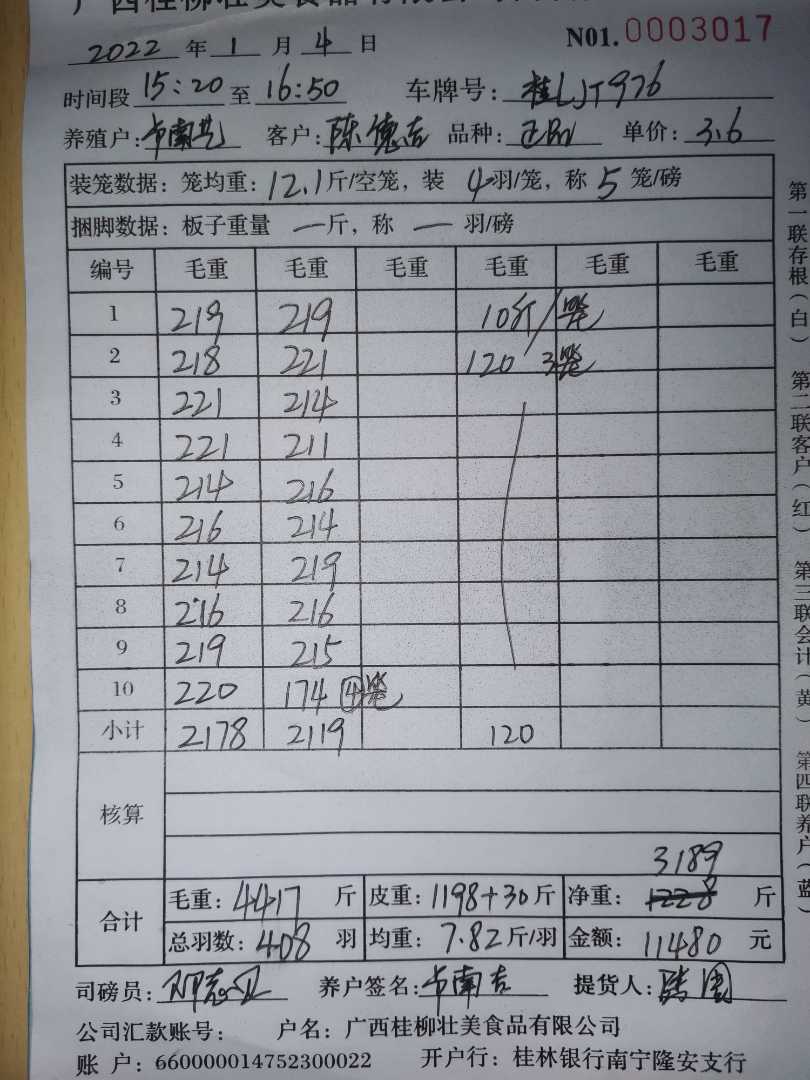 2022 年 1 月 4 日 N01. 0003017
时间段 15:20 至 16:50 车牌号: 桂LJT976
养殖户: 客户: 陈德吉 品种: 单价: 3.6
装笼数据: 笼均重: 12.1 斤/空笼, 装 4 羽/笼, 称 5 笼/磅
捆脚数据: 板子重量 一 斤, 称 一 羽/磅
编号 毛重 毛重 毛重 毛重 毛重 毛重
1 219 219 10斤/笼
2 218 221 120 3笼
3 221 214
4 221 211
5 214 216
6 216 214
7 214 219
8 216 216
9 219 215
10 220 174 ④笼
小计 2178 2119 120
核算
3189
合计 毛重: 4417 斤 皮重: 1198+30 斤 净重: 1228 斤
总羽数: 408 羽 均重: 7.82 斤/羽 金额: 11480 元
司磅员: 养户签名: 提货人:
公司汇款账号: 户名: 广西桂柳壮美食品有限公司
账 户: 660000014752300022 开户行: 桂林银行南宁隆安支行
第一联存根(白) 第二联客户(红) 第三联会计(黄) 第四联养户(蓝)